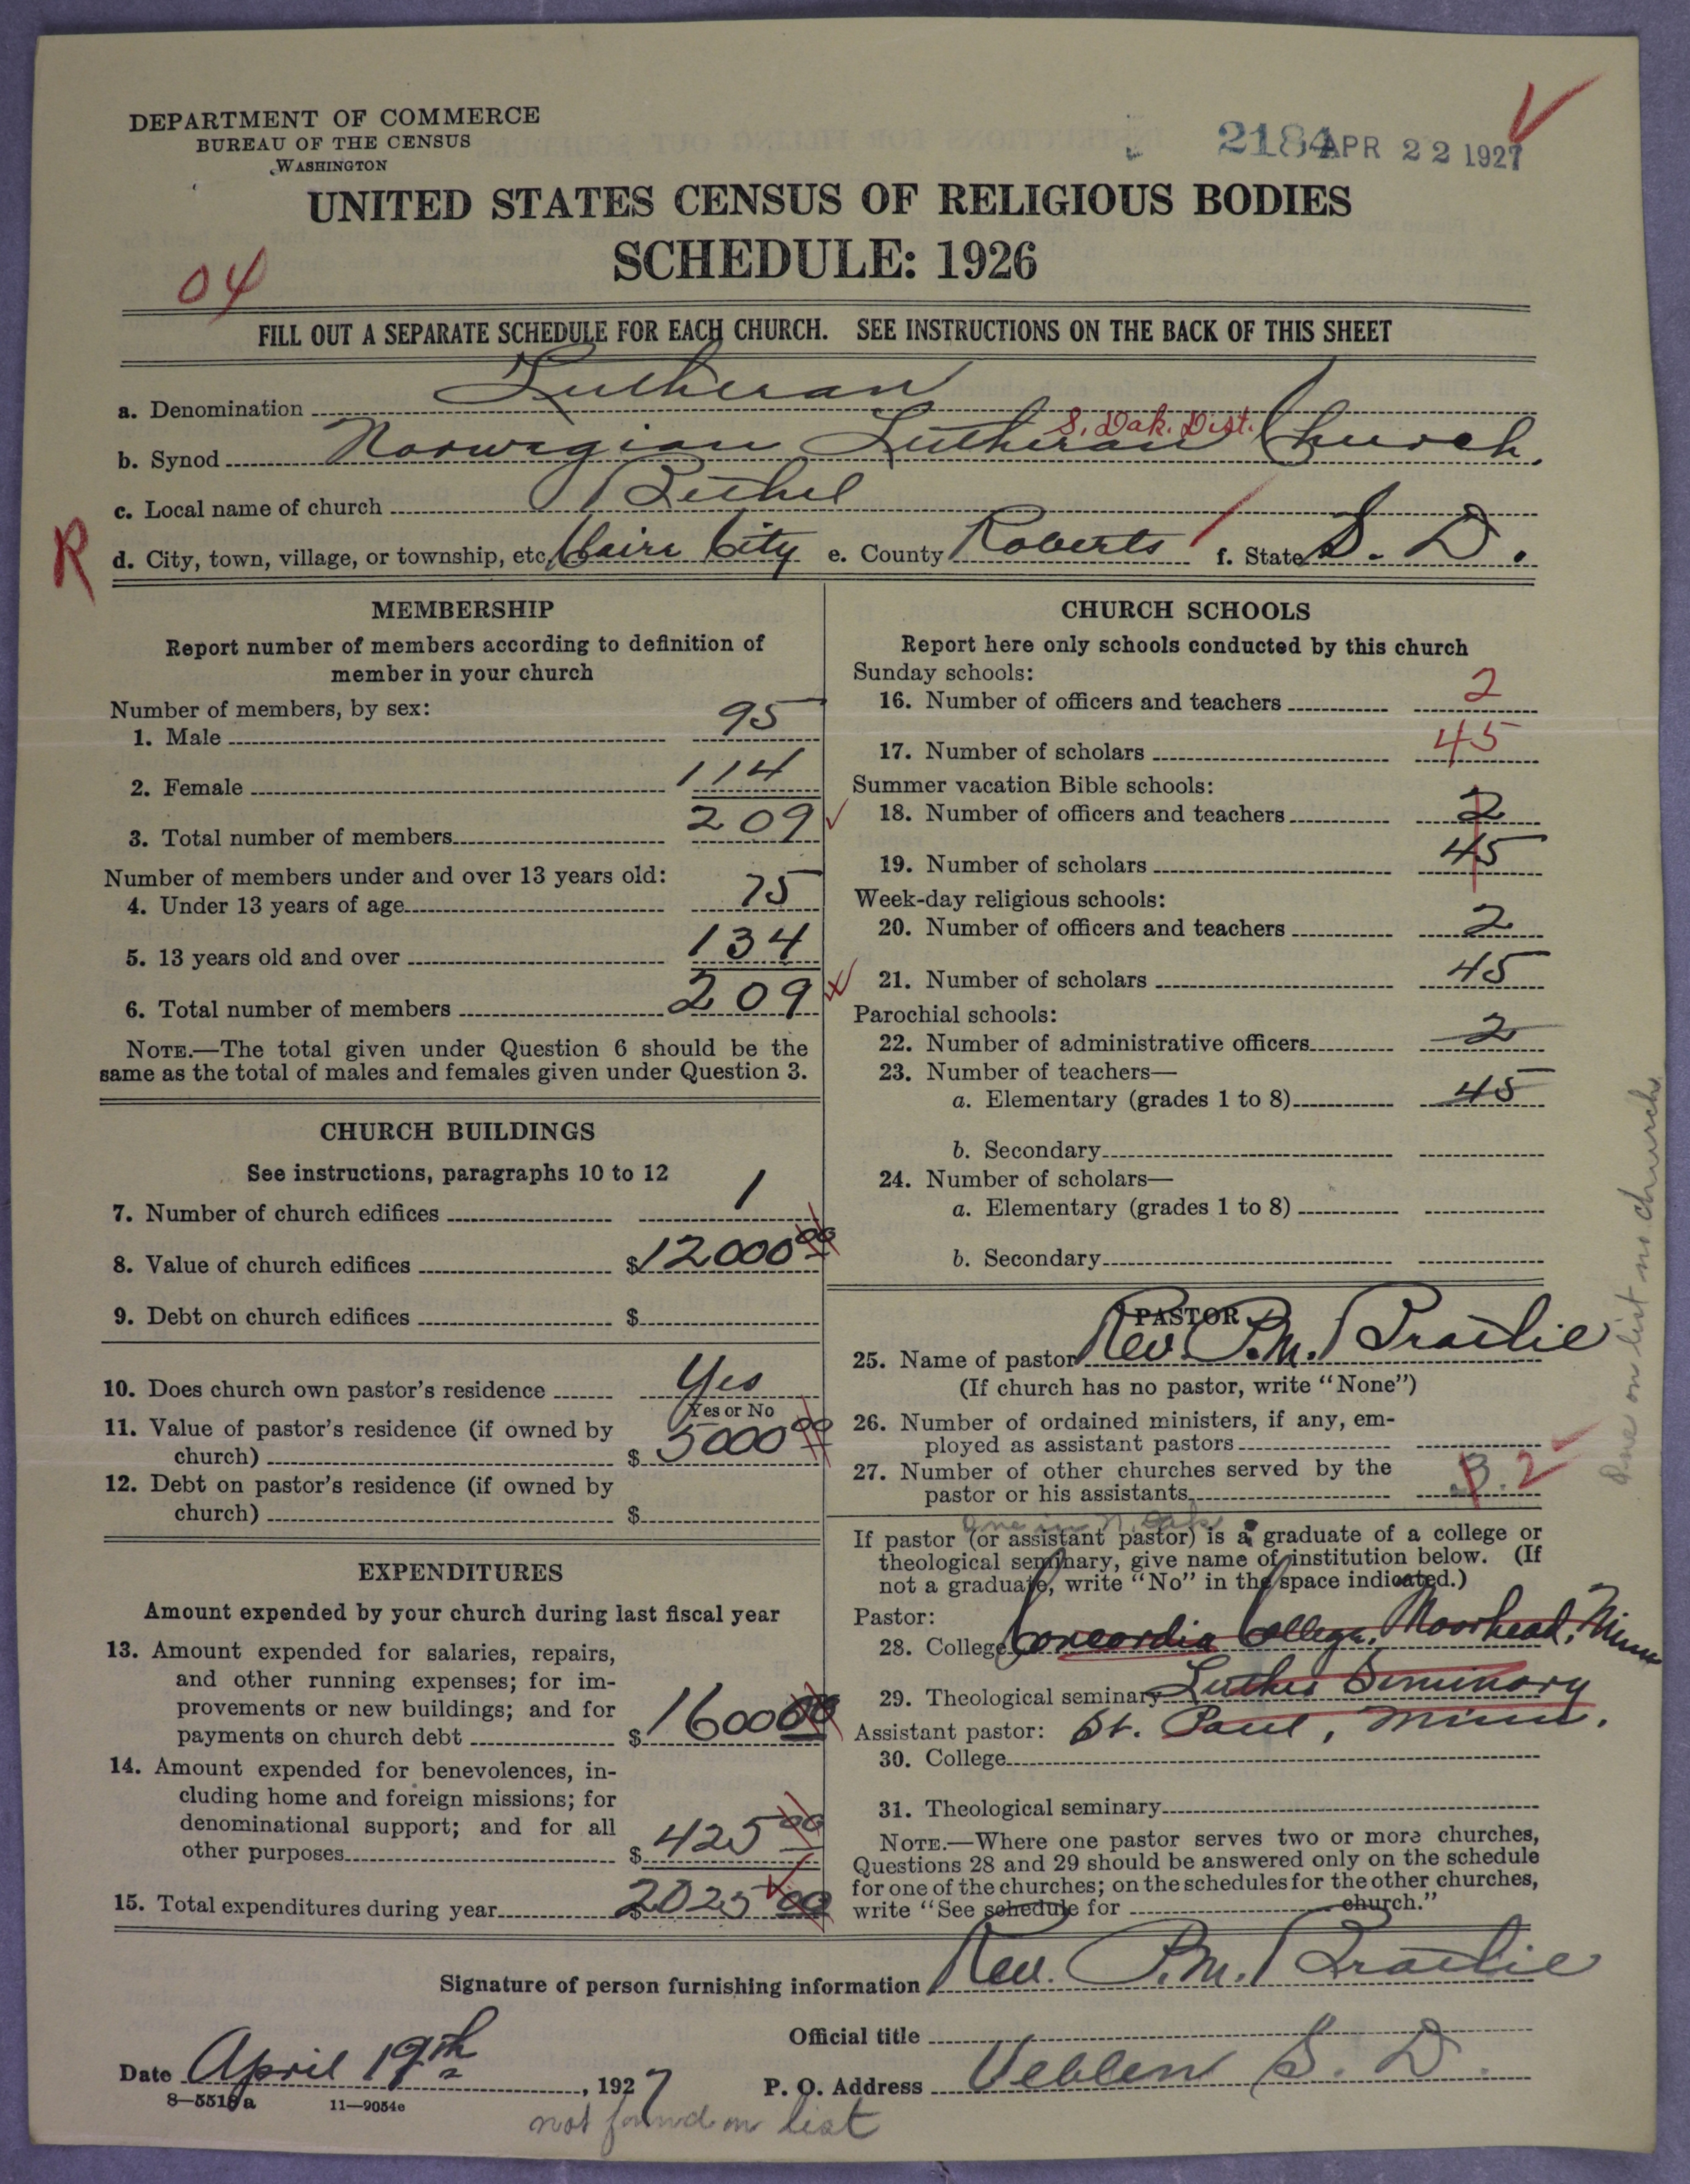 DEPARTMENT OF COMMERCE
BUREAU OF THE CENSUS
WASHINGTON
2184 APR 22 1927
UNITED STATES CENSUS OF RELIGIOUS BODIES
SCHEDULE: 1926
04
FILL OUT A SEPARATE SCHEDULE FOR EACH CHURCH. SEE INSTRUCTIONS ON THE BACK OF THIS SHEET
a. Denomination Lutheran
S. Dak. Dist.
b. Synod Norwegian Lutheran Church.
c. Local name of church Bethel
R
d. City, town, village, or township, etc. Claire City e. County Roberts f. State S. D.
MEMBERSHIP
Report number of members according to definition of
member in your church
Number of members, by sex:
1. Male 95
2. Female 114
3. Total number of members 209
Number of members under and over 13 years old:
4. Under 13 years of age 75
5. 13 years old and over 134
6. Total number of members 209
NOTE.—The total given under Question 6 should be the
same as the total of males and females given under Question 3.
CHURCH BUILDINGS
See instructions, paragraphs 10 to 12
7. Number of church edifices 1
8. Value of church edifices $12000 00
9. Debt on church edifices $
10. Does church own pastor's residence Yes
Yes or No
11. Value of pastor's residence (if owned by
church) $ 5000 00
12. Debt on pastor's residence (if owned by
church) $
EXPENDITURES
Amount expended by your church during last fiscal year
13. Amount expended for salaries, repairs,
and other running expenses; for im-
provements or new buildings; and for
payments on church debt $ 1600 00
14. Amount expended for benevolences, in-
cluding home and foreign missions; for
denominational support; and for all
other purposes $ 425 00
15. Total expenditures during year $ 2025 00
CHURCH SCHOOLS
Report here only schools conducted by this church
Sunday schools:
16. Number of officers and teachers 2
17. Number of scholars 45
Summer vacation Bible schools:
18. Number of officers and teachers 2
19. Number of scholars 45
Week-day religious schools:
20. Number of officers and teachers 2
21. Number of scholars 45
Parochial schools:
22. Number of administrative officers 2
23. Number of teachers—
a. Elementary (grades 1 to 8) 45
b. Secondary
24. Number of scholars—
a. Elementary (grades 1 to 8)
b. Secondary
PASTOR
25. Name of pastor Rev. P.M.
(If church has no pastor, write "None")
26. Number of ordained ministers, if any, em-
ployed as assistant pastors
27. Number of other churches served by the
pastor or his assistants 3. 2
One in N. Dak
If pastor (or assistant pastor) is a graduate of a college or
theological seminary, give name of institution below. (If
not a graduate, write "No" in the space indicated.)
Pastor:
28. College Concordia College, Moorhead, Minn
29. Theological seminary Luther Seminary
Assistant pastor: St. Paul, Minn.
30. College
31. Theological seminary
NOTE.—Where one pastor serves two or more churches,
Questions 28 and 29 should be answered only on the schedule
for one of the churches; on the schedules for the other churches,
write "See schedule for church."
One on list no church
Signature of person furnishing information Rev. P.M.
Official title
Date April 19th, 1927 P. O. Address Veblen S. D.
8—5518a 11—9054e
not found on list